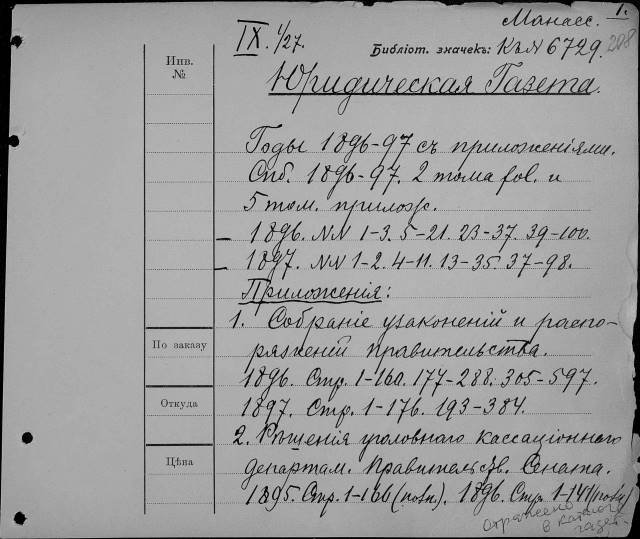 Манасс. 1.
IX. 1/27.
Библіот. значекъ: КѣN 6729. 288
Юридическая Газета.
Инв.
№
Годы 1896-97 съ приложеніями.
Спб. 1896-97. 2 тома fol. и
5 том. прилож.
1896. NN 1-3. 5-21. 23-37. 39-100.
1897. NN 1-2. 4-11. 13-35. 37-98.
Приложенія:
1. Собраніе узаконеній и распо-
ряженій правительства.
По заказу
1896. Стр. 1-160. 177-288. 305-597.
1897. Стр. 1-176. 193-384.
Откуда
2. Рѣшенія уголовнаго кассаціоннаго
департам. Правительств. Сената.
Цѣна
1895. Стр. 1-166 (полн.). 1896. Стр. 1-141 (полн.)
отражено
в каталоге
газет.